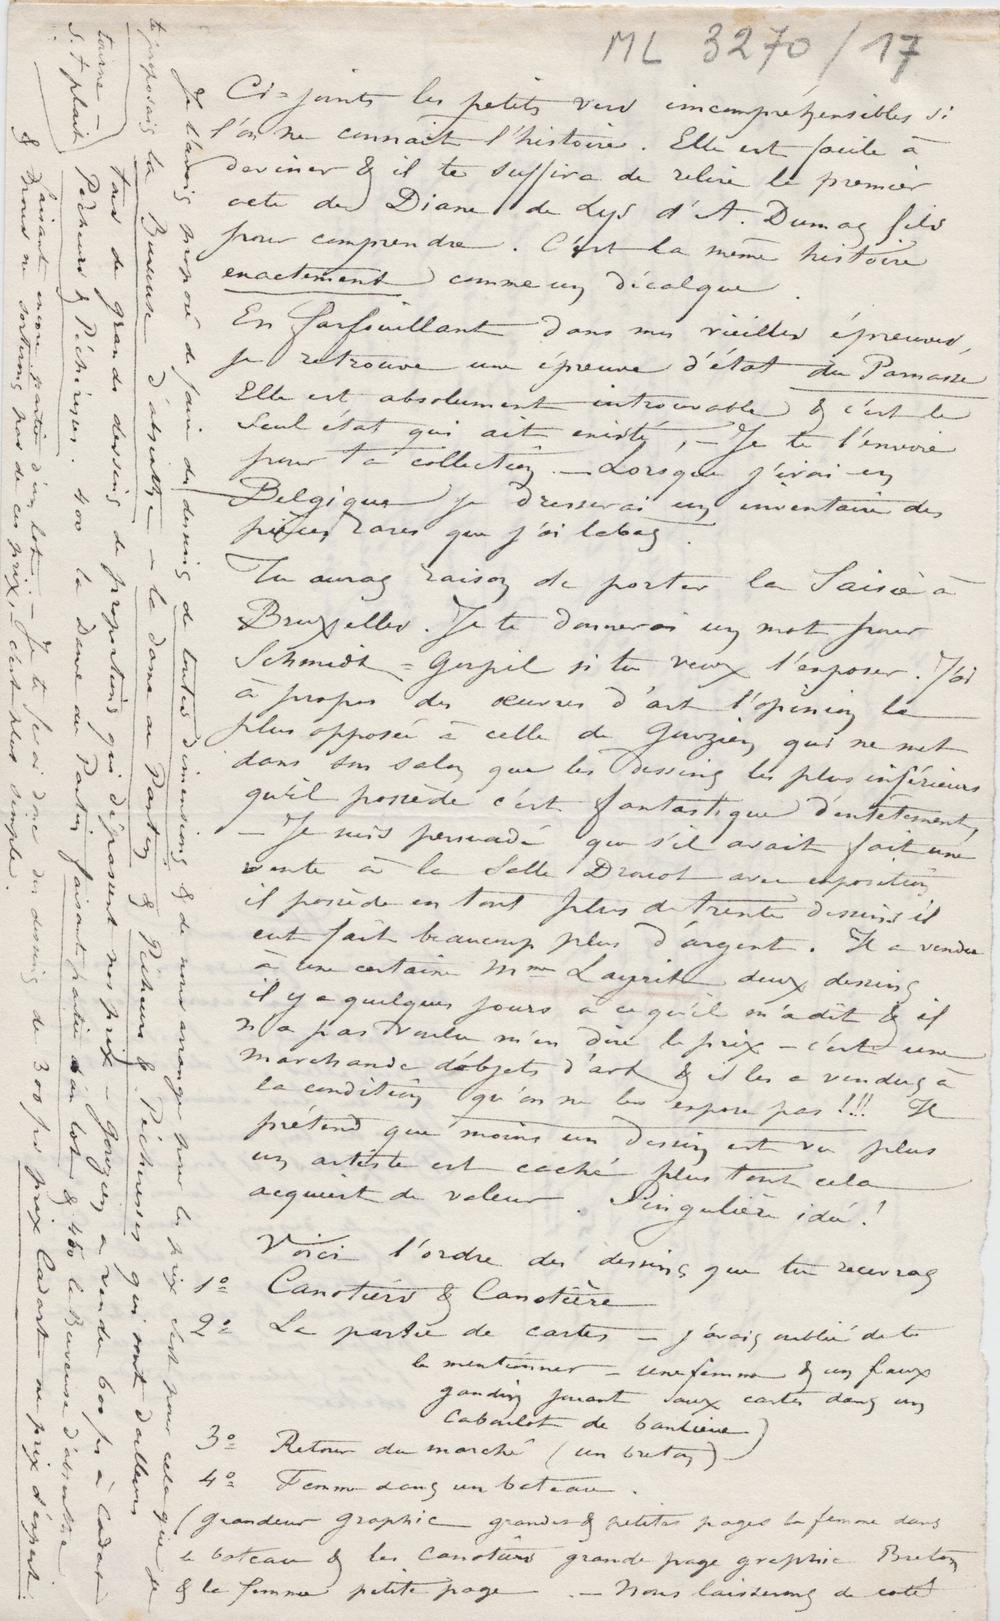 ML 3270/17
Ci-joints les petits vers incompréhensibles si
l'on ne connait l'histoire. Elle est facile à
deviner & il te suffira de relire le premier
acte de Diane de Lys d'A. Dumas fils
pour comprendre. C'est la même histoire
exactement comme un décalque.
En farfouillant dans mes vieilles épreuves,
je retrouve une épreuve d'état du Parnasse
Elle est absolument introuvable & c'est le
seul état qui ait existé, — Je te l'envoie
pour ta collection — Lorsque j'irai en
Belgique je dresserai un inventaire des
pièces rares que j'ai labas.
Tu auras raison de porter la Saisie à
Bruxelles. Je te donnerai un mot pour
Schmidt = Goupil si tu veux l'exposer. J'ai
à propos des œuvres d'art l'opinion la
plus opposée à celle de Gouzien qui ne met
dans son salon que les dessins les plus inférieurs
qu'il possède c'est fantastique d'entêtement,
— Je suis persuadé que s'il avait fait une
vente à la Salle Drouot avec exposition
il possède en tout plus de trente dessins il
eut fait beaucoup plus d'argent. Il a vendu
à une certaine Mme Layrit deux dessins
il y a quelques jours à ce qu'il m'a dit & il
n'a pas voulu m'en dire le prix — c'est une
marchande d'objets d'art & il les a vendus à
la condition qu'on ne les expose pas !!! Il
prétend que moins un dessin est vu plus
un artiste est caché plus tout cela
acquiert de valeur. Singulière idée !
Voici l'ordre des dessins que tu recevras
1º Canotiers & Canotière
2º La partie de cartes — j'avais oublié de te
la mentionner — une femme & un faux
gandin jouant aux cartes dans un
caboulot de banlieue)
3º Retour du marché (un breton) —
4º Femme dans un bateau.
(grandeur graphic grandes & petites pages la femme dans
le bateau & les canotiers grande page graphic Breton
& la femme petite page — Nous laisserons de coté
Je t'avais proposé de faire des dessins de toutes dimensions & de nous arranger pour les prix c'est pour cela que je
te proposais la Buveuse d'absinthe — la dame au Pantin & Pêcheurs & Pêcheresses qui sont d'ailleurs
tous de grands dessins de proportions qui dépassent nos prix — Gouzien a vendu 600 frs à Cadart
Pêcheurs & Pêcheresses. 400 la Dame au Pantin faisant partie d'un lot & 450 la Buveuse d'absinthe
faisant encore partie d'un lot. — Je te ferai donc des dessins de 300 frs prix Cadart ou prix d'expert.
& nous ne sortirons pas de ces prix, — c'est plus simple.
tourne —
s. t plait